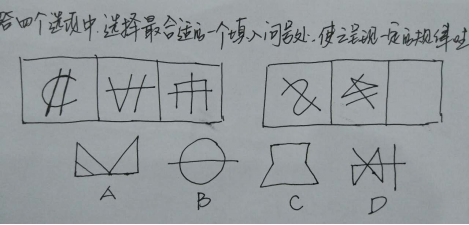 答四个选项中,选择最合适的一个填入问号处,使之呈现一定的规律性
A B C D